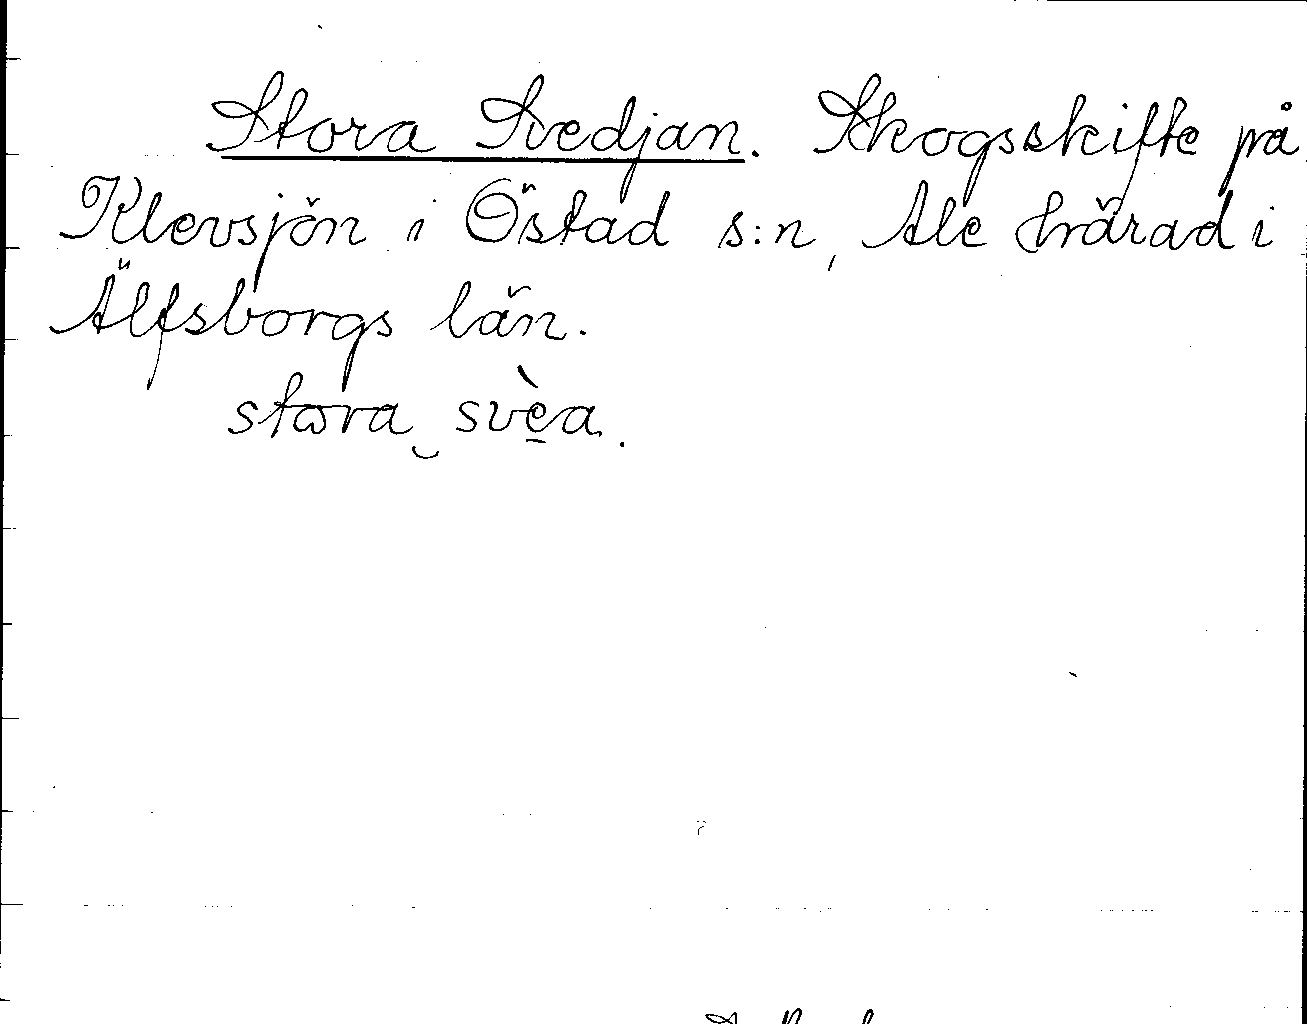 Stora Svedjan. Skogsskifte på
Klevsjön i Östad s:n, Ale härad i
Älfsborgs län.
stωra‿svèa.